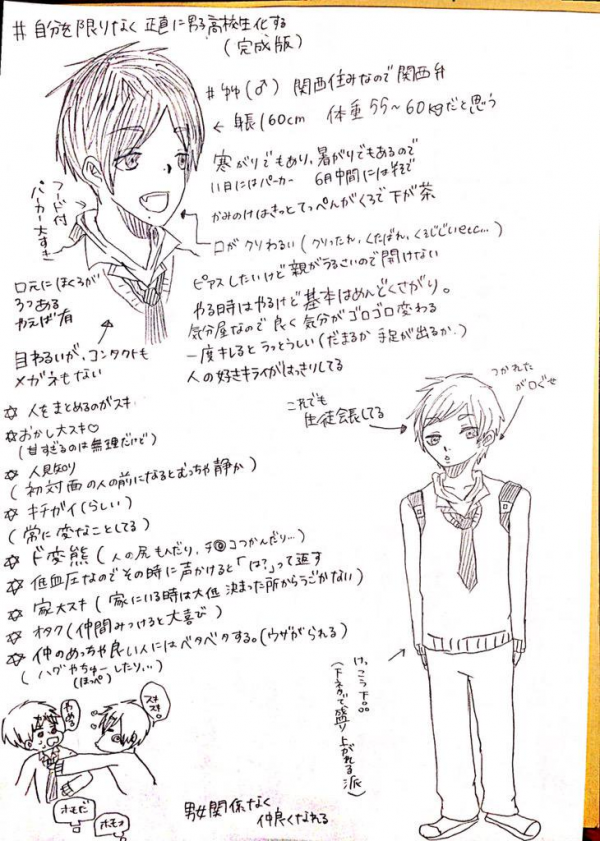 # 自分を限りなく正直に男子高校生化する
(完成版)
(♂) 関西住みなので関西弁
← 身長160cm 体重55~60kgだと思う
寒がりでもあり、暑がりでもあるので
い日にはパーカー 6月中間には半そで
かみのけはきってっぺんがくろで下が茶
口がクソわるい(クソったれ、くたばれ、くそじじいetc...)
フード付
パーカー大すき
口元にほくろが
3つある
やえば有
目わるいが、コンタクトも
メガネもない
ピアスしたいけど親がうるさいので開けない
やる時はやるけど基本はめんどくさがり。
気分屋なので良く気分がゴロゴロ変わる
一度キレるとうっとうしい(だまるか手足が出るか.)
人の好きキライがはっきりしてる
☆ 人をまとめるのがスキ
☆ おかし大スキ♡
(甘すぎるのは無理だけど)
☆ 人見知り
(初対面の人の前になるとむっちゃ静か)
☆ キチガイ(らしい)
(常に変なことしてる)
☆ ド変熊(人の尻もんだり、チ◎コつかんだり...)
☆ 低血圧なのでその時に声かけると「は?」って返す
☆ 家大スキ(家にいる時は大体 決まった所からうごかない)
☆ オタク(仲間みつけると大喜び)
☆ 仲のめっちゃ良い人にはベタベタする。(ウザがられる)
(ハグやちゅーしたり...)
(ほっぺ)
これでも
生徒会長してる
つかれた
が口ぐせ
けっこう下。。
(下ネタで盛り上がれる派)
やめろ
スキスキ
ホモだ
ホモォ
男女関係なく
仲良くなれる